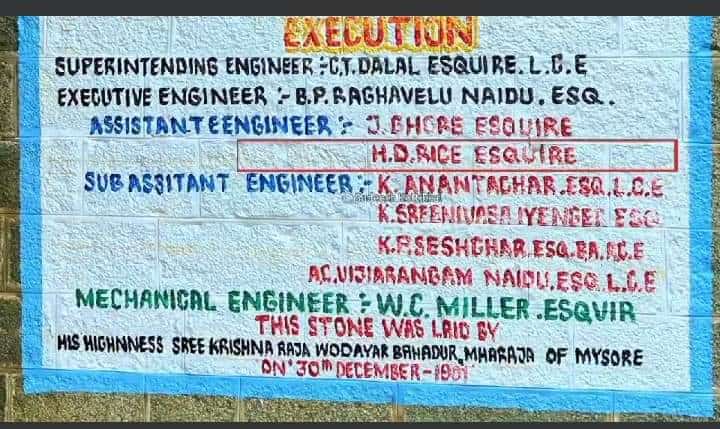 EXECUTION
SUPERINTENDING ENGINEER :- C.T. DALAL ESQUIRE. L.C.E
EXECUTIVE ENGINEER :- B.P. RAGHAVELU NAIDU. ESQ.
ASSISTANTEENGINEER :- J. BHORE ESQUIRE
H.D. RICE ESQUIRE
SUB ASSITANT ENGINEER :- K. ANANTACHAR. ESQ. L.C.E
K. SREENIVASA IYENGER ESQ
K.P. SESHCHAR. ESQ. BA. AC.E
AC. VIJIARANGAM NAIDU. ESQ. L.C.E
MECHANICAL ENGINEER :- W.C. MILLER .ESQVIR
THIS STONE WAS LAID BY
HIS HIGHNNESS SREE KRISHNA RAJA WODAYAR BAHADUR, MHARAJA OF MYSORE
ON 30TH DECEMBER -